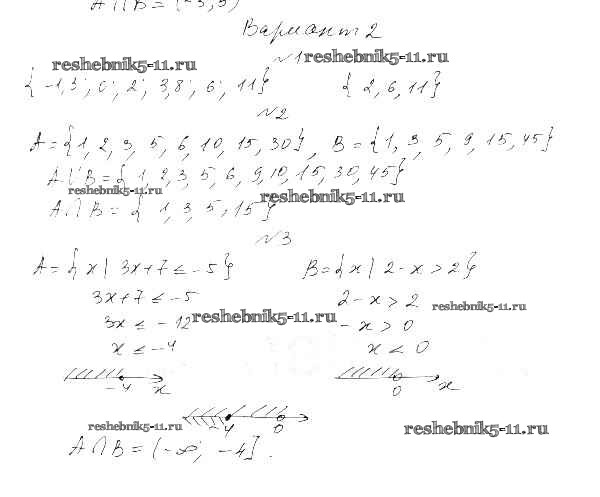 A∩B = (-3; 5)
Вариант 2
№1 reshebnik5-11.ru
reshebnik5-11.ru
{-1,3; 0; 2; 3,8; 6; 11} {2, 6, 11}
№2
A={1, 2, 3, 5, 6, 10, 15, 30}, B={1, 3, 5, 9, 15, 45}
A∪B={1, 2, 3, 5, 6, 9, 10, 15, 30, 45}
reshebnik5-11.ru reshebnik5-11.ru
A∩B = {1, 3, 5, 15}
№3
A={x | 3x+7 ≤ -5} B={x | 2-x > 2}
3x+7 ≤ -5 2-x > 2 reshebnik5-11.ru
3x ≤ -12 reshebnik5-11.ru -x > 0
x ≤ -4 x < 0
-4 x 0 x
reshebnik5-11.ru -4 0 reshebnik5-11.ru
A∩B = (-∞; -4].